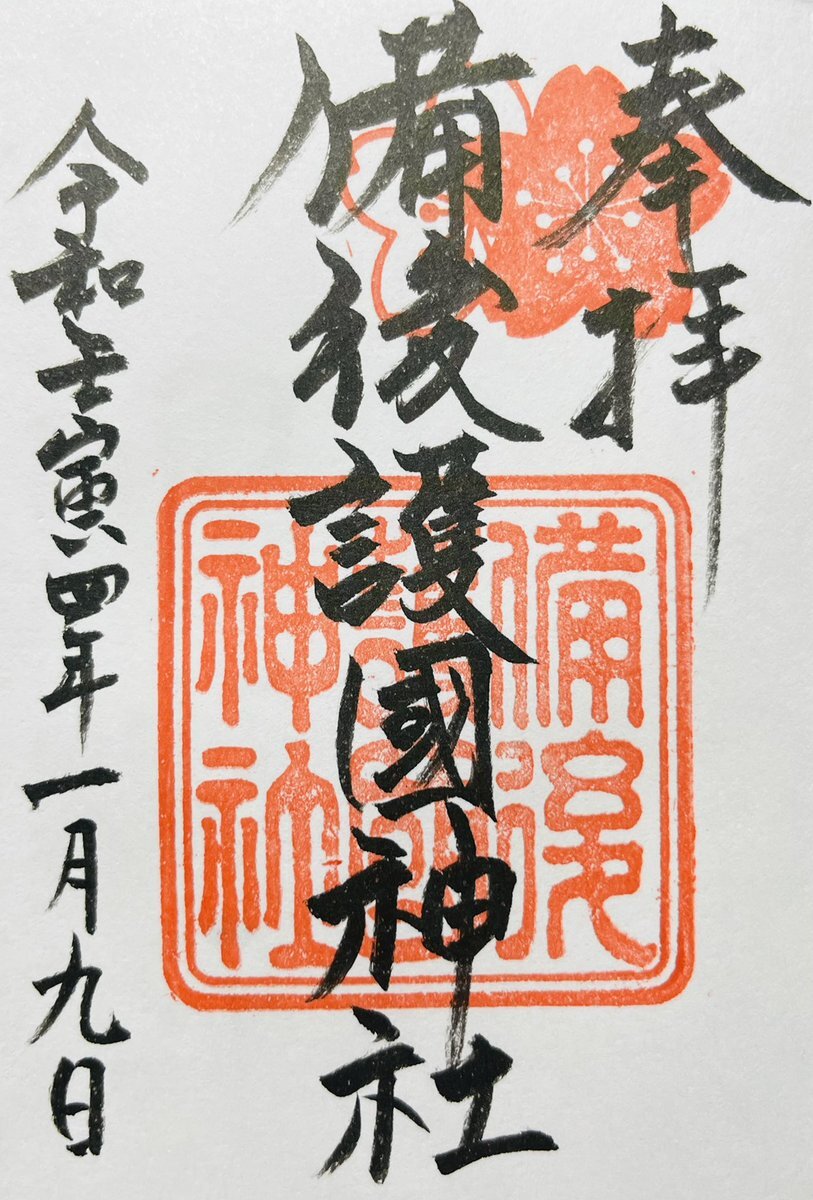 奉拝
備後護國神社
備後護國神社
令和壬寅四年一月九日